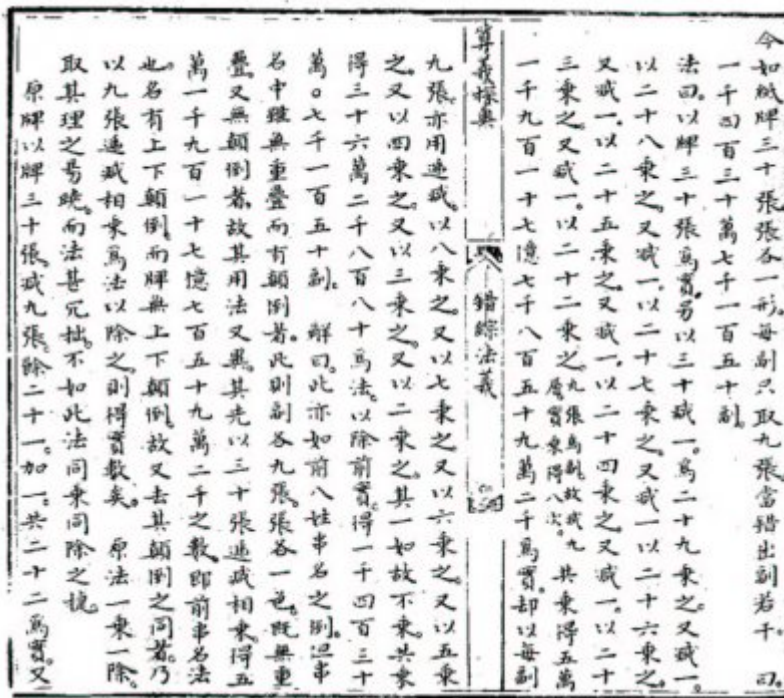 今如紙牌三十張張各一形每副只取九張當錯出副若干 曰
一千四百三十萬七千一百五十副
法曰以牌三十張爲實另以三十減一爲二十九乘之又減一
以二十八乘之又減一以二十七乘之又減一以二十六乘之
又減一以二十五乘之又減一以二十四乘之又減一以二十
三乘之又減一以二十二乘之九張爲副故減九層實乘得八次共乘得五萬
一千九百一十七億七千八百五十九萬二千爲實却以每副
算義探奥
錯綜法義
九張亦用遞減以八乘之又以七乘之又以六乘之又以五乘
之又以四乘之又以三乘之又以二乘之其一如故不乘共乘
得三十六萬二千八百八十爲法以除前實得一千四百三十
萬〇七千一百五十副 解曰此亦如前八姓串名之例但串
名中雖無重疊而有顛倒者此則副各九張張各一色既無重
疊又無顛倒者故其用法又異其先以三十張遞減相乘得五
萬一千九百一十七億七百五十九萬二千之數即前串名法
也名有上下顛倒而牌無上下顛倒故又去其顛倒之同者乃
以九張遞減相乘爲法以除之則得實數矣 原法一乘一除
取其理之易曉而法甚冗拙不如此法同乘同除之捷
原牌以牌三十張減九張餘二十一加一共二十二爲實又